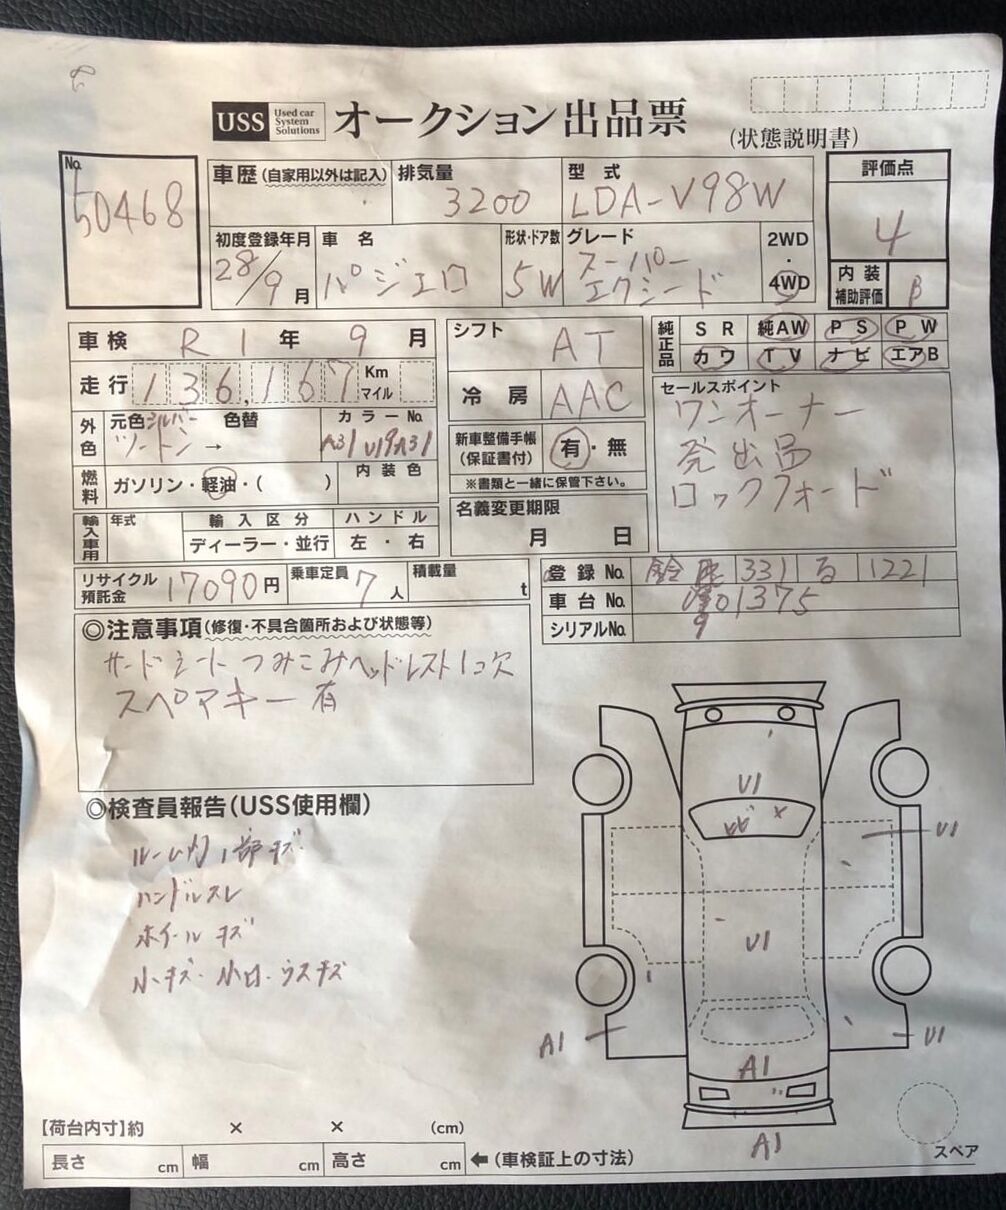 USS Used car System Solutions オークション出品票
(状態説明書)
No. 50468
車歴 (自家用以外は記入)
排気量 3200
型式 LDA-V98W
評価点 4
初度登録年月 28/9月
車名 パジェロ
形状・ドア数 5W
グレード スーパー エクシード
2WD・4WD
内装補助評価 B
車検 R1年9月
シフト AT
純正品 SR 純AW PS PW
カワ TV ナビ エアB
走行 136,167 Km マイル
冷房 AAC
セールスポイント
ワンオーナー
発出品
ロックフォード
外色 元色 シルバー ツートン → 色替
カラーNo. A31 U19A31
新車整備手帳(保証書付) 有・無
※書類と一緒に保管下さい。
燃料 ガソリン・軽油・( )
内装色
名義変更期限 月 日
輸入車用 年式 輸入区分 ディーラー・並行 ハンドル 左・右
リサイクル預託金 17090円
乗車定員 7人
積載量 t
登録No. 331 る 1221
車台No. 01375
シリアルNo.
◎注意事項(修復・不具合箇所および状態等)
サードシート つみこみヘッドレスト1コ欠
スペアキー有
◎検査員報告(USS使用欄)
ルーム内1部キズ
ハンドルスレ
ホイールキズ
小キズ・小凹・ウスキズ
U1
トビ ×
U1
U1
A1
U1
A1
A1
【荷台内寸】約 × × (cm)
長さ cm 幅 cm 高さ cm ←(車検証上の寸法)
スペア